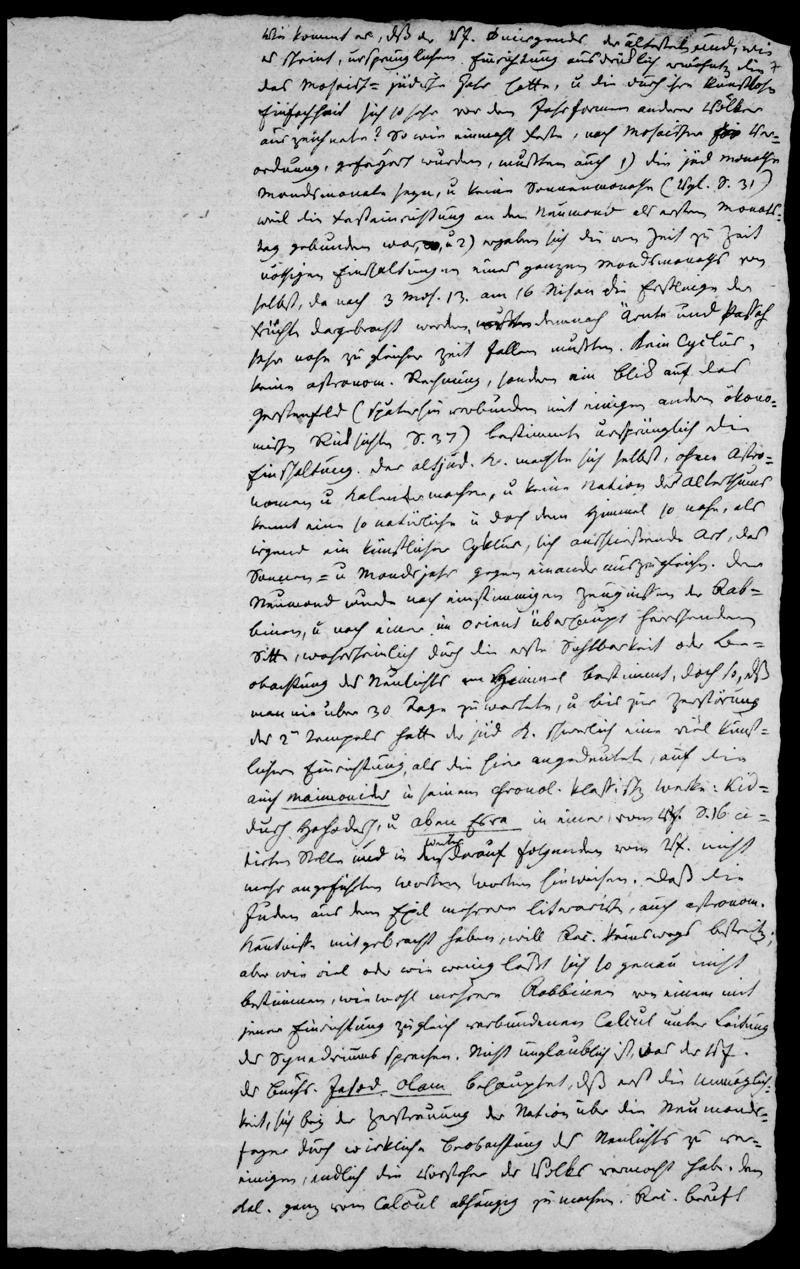 Wie kommt es, daß der Vf. nirgends der ältesten und, wie
es scheint, ursprünglichen Einrichtung ausdrücklich erwähnt, die
das Mosaisch-jüdische Jahr hatte, u die durch ihre kunstlose
Einfachheit sich so sehr vor den Jahrformen anderer Völker
auszeichnete? So wie einmahl Feste, nach Mosaischer Ver=
ordnung, gefeyert wurden, mußten auch 1) die jüd Monathe
Mondsmonate seyn, u keine Sonnenmonathe (Vgl. S. 31)
weil die Festeinrichtung an den Neumond als ersten Monats=
tag gebunden war, u 2) ergaben sich die von Zeit zu Zeit
nöthigen Einschaltungen eines ganzen Mondsmonaths von
selbst, da nach 3 Mos. 13. am 16 Nisan die Erstlinge der
Früchte dargebracht werden, demnach Ärnte und Passah
sehr nahe zu gleicher Zeit fallen mußten. Kein Cyclus,
keine astronom. Rechnung, sondern ein Blick auf das
Gerstenfeld (späterhin verbunden mit einigen andern ökono=
mischen Rücksichten S. 37) bestimmte ursprünglich die
Einschaltung. Der altjüd. K. machte sich selbst, ohne Astro=
nomen u Kalendermacher, u keine Nation des Alterthums
kennt eine so natürliche u doch dem Himmel so nahe, als
irgend ein künstlicher Cyklus, sich anschließende Art, das
Sonnen= u Mondsjahr gegen einander auszugleichen. Der
Neumond wurde nach einstimmigen Zeugnissen der Rab=
binen, u nach einer im Orient überhaupt herrschenden
Sitte, wahrscheinlich durch die erste Sichtbarkeit oder Beo=
bachtung des Neulichts am Himmel bestimmt, doch so, daß
man nie über 30 Tage zu wartete, u bis zur Zerstörung
des 2n Tempels hatte der jüd K. schwerlich eine viel künst=
lichere Einrichtung, als die hier angedeutete, auf die
auch Maimonides in seinem chronol. klassisch. Werke: Kid=
dusch Hachodesch, u Aben Esra in einer, vom Vf. S. 16 ci=
tirten Stelle und in den darauf folgenden vom Vf. nicht
mehr angeführten Worten hinweisen. Daß die
Juden aus dem Exil mehrere literarische, auch astronom.
Kenntnisse mitgebracht haben, will Rec. keineswegs bestreiten;
aber wie viel oder wie wenig läßt sich so genau nicht
bestimmen, wiewohl mehrere Rabbinen von einem mit
jener Einrichtung zugleich verbundenen Calcul unter Leitung
des Synedriums sprechen. Nicht unglaublich ist, was der Vf.
des Buchs. Jesod olam behauptet, daß erst die Unmöglich=
keit, sich bey der Zerstreuung der Nation über die Neumonds=
feyer durch wirkliche Beobachtung des Neulichts zu ver=
einigen, endlich die Vorsteher des Volks vermocht habe, den
Kal. ganz vom Calcul abhängig zu machen. Rec. beruft